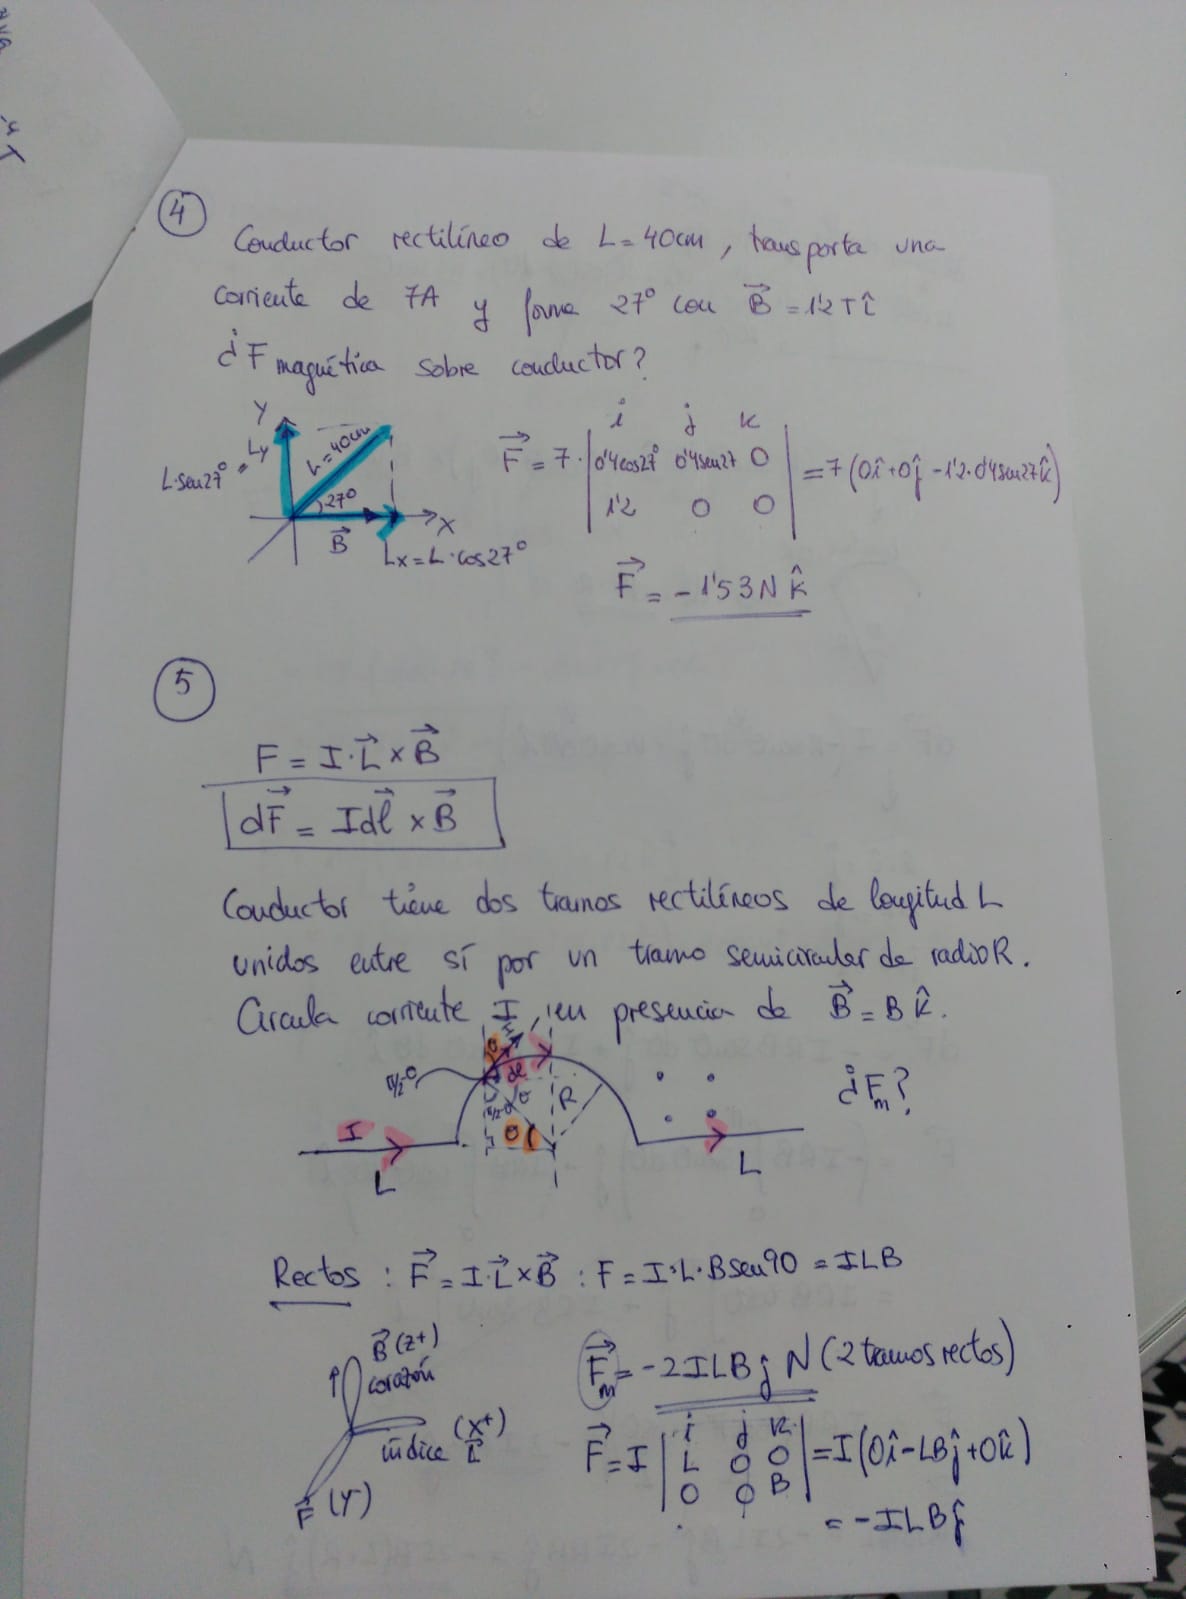 ④
Conductor rectilíneo de L = 40cm, transporta una
corriente de 7A y forma 27º con B⃗ = 1'2 T î
¿F magnética sobre conductor?
Y
Ly
L·sen27º =
L=40cm
27º
B⃗
X
Lx = L·cos27º
F⃗ = 7· | i j k ; 0'4cos27º 0'4sen27 0 ; 1'2 0 0 | = 7 (0î + 0ĵ - 1'2·0'4sen27 k̂)
F⃗ = -1'53 N k̂
⑤
F = I·L⃗ × B⃗
dF⃗ = Idl⃗ × B⃗
Conductor tiene dos tramos rectilíneos de longitud L
unidos entre sí por un tramo semicircular de radio R.
Circula corriente I, en presencia de B⃗ = B k̂.
¿Fm?
θ
dl
π/2-θ
π/2-θ
θ
R
θ
I
L
L
Rectos : F⃗ = I·L⃗ × B⃗ : F = I·L·B sen90 = ILB
B⃗ (z+)
corazón
índice (x+) L⃗
F⃗ (Y-)
F⃗m = -2ILB ĵ N (2 tramos rectos)
F⃗ = I | i j k ; L 0 0 ; 0 0 B | = I (0î - LBĵ + 0k̂)
= -ILBĵ